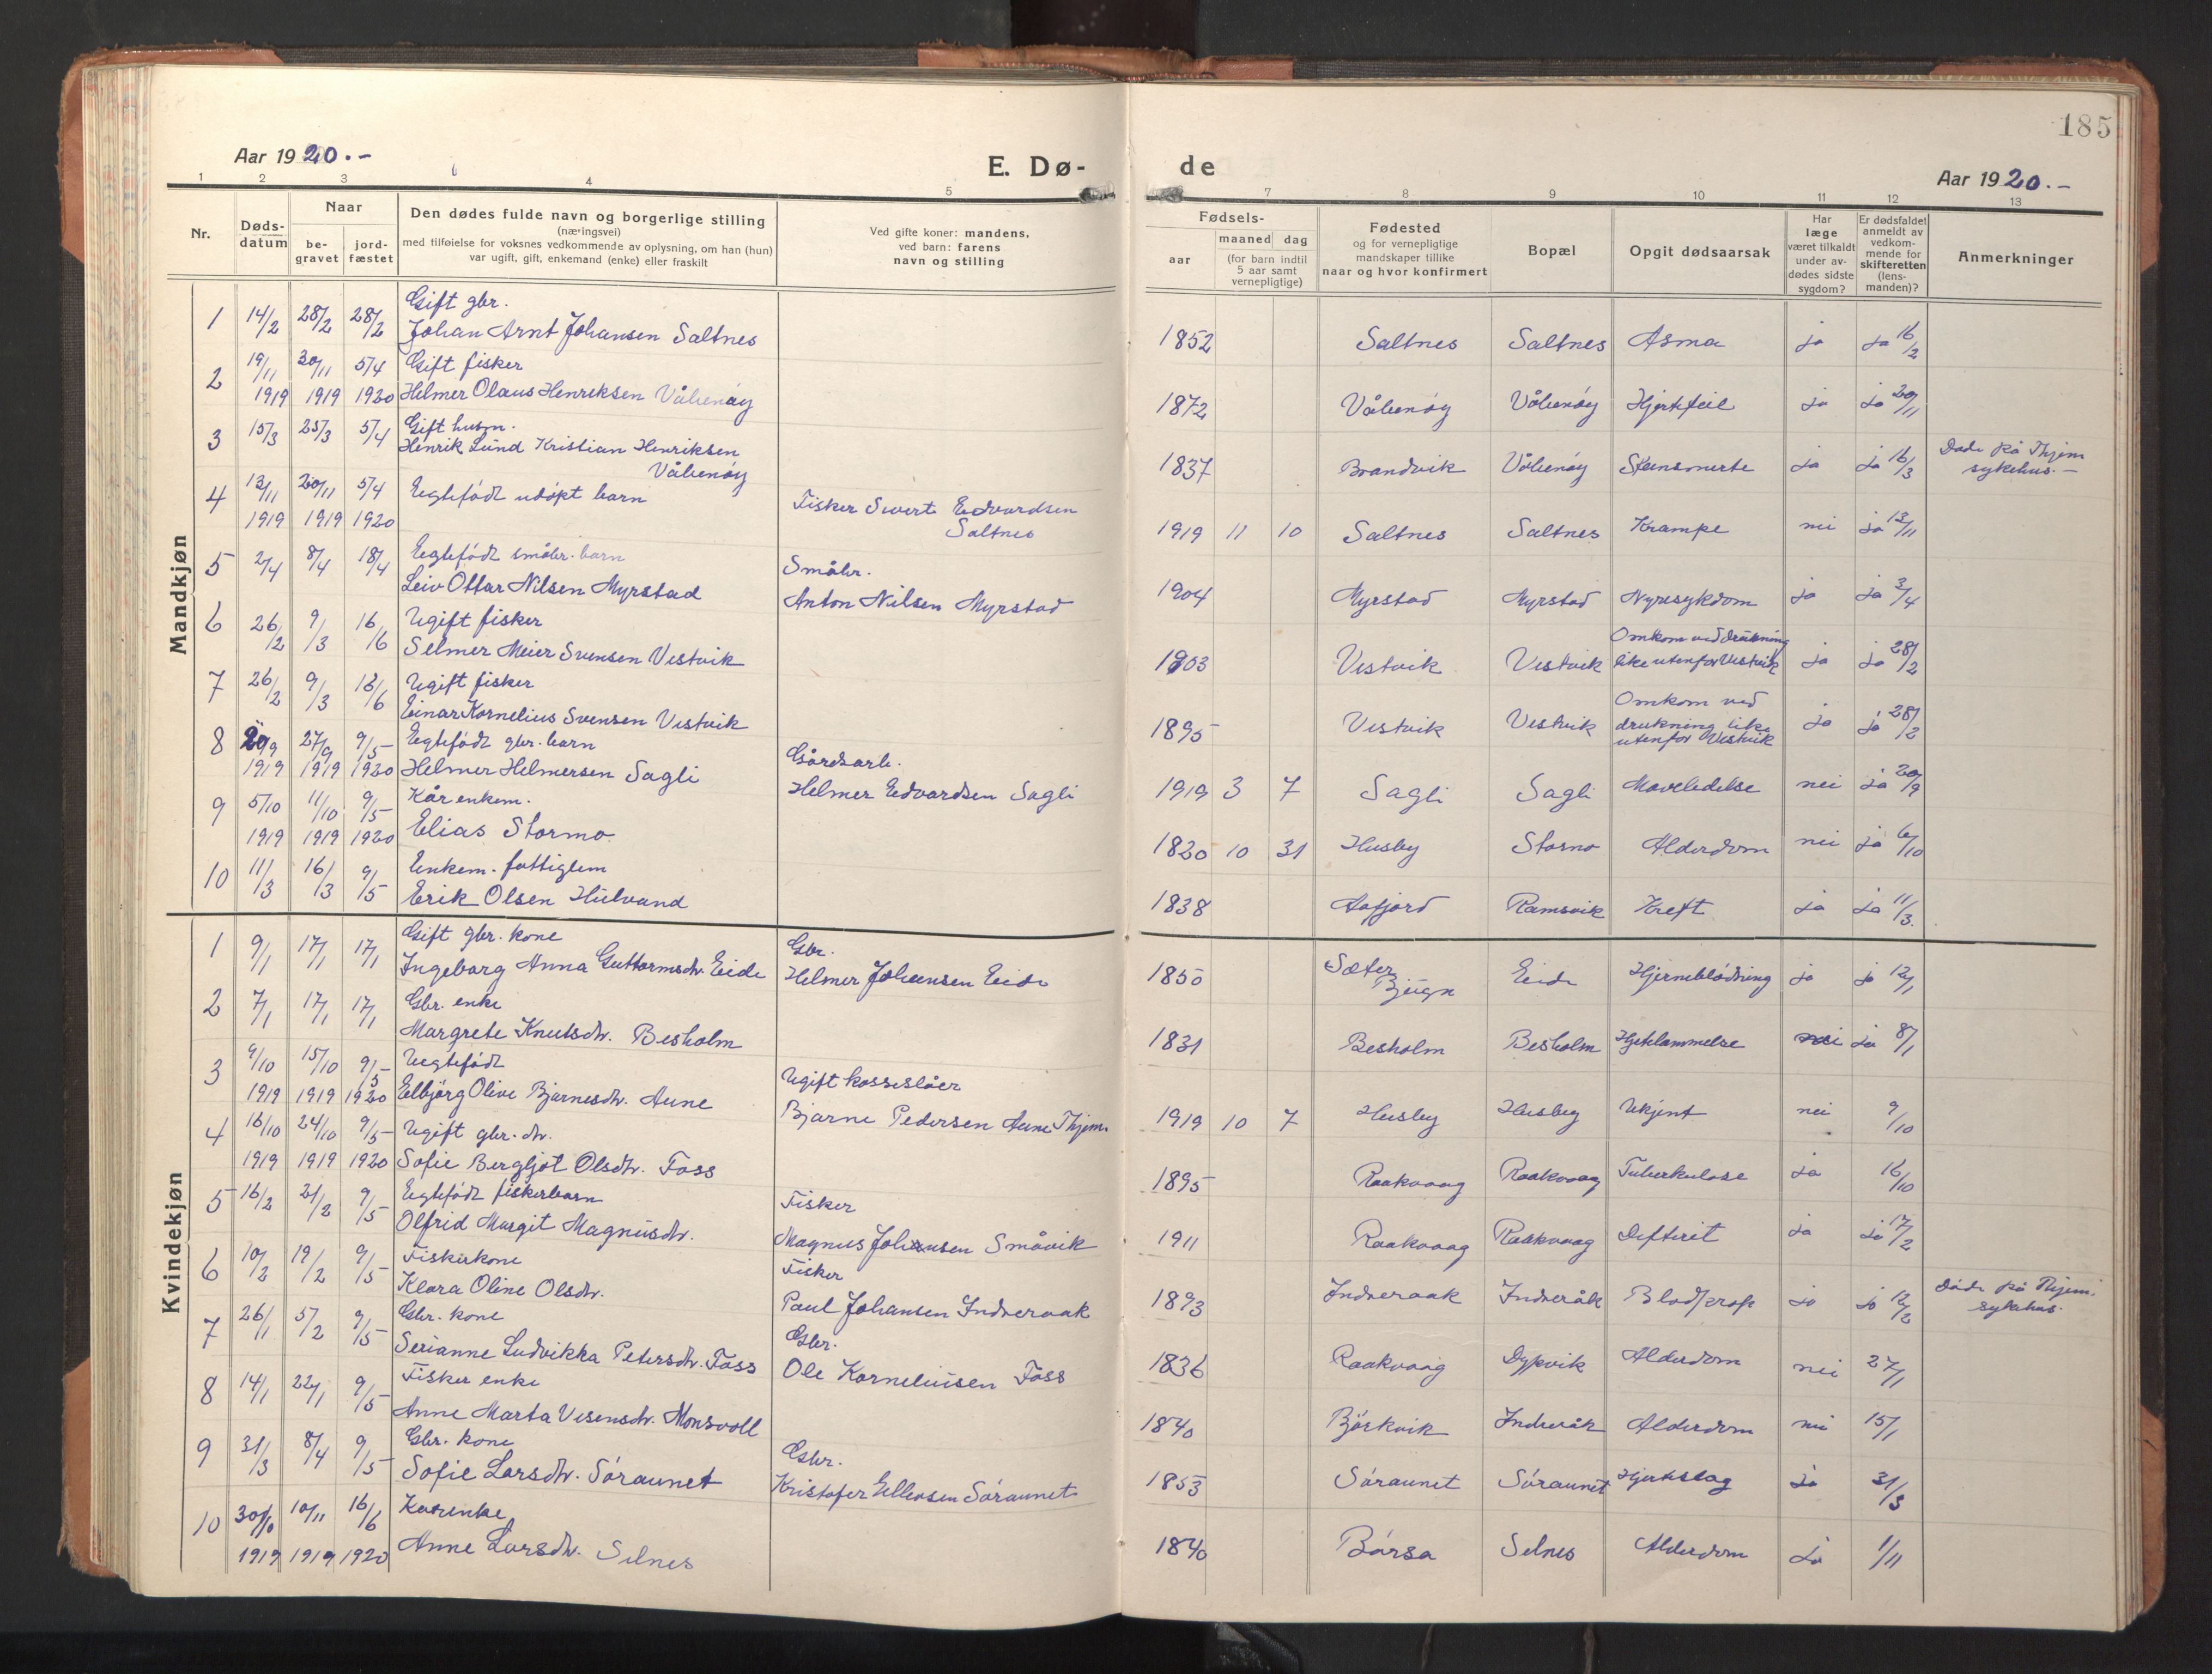 185
Aar 1920.-
E. Dø-
de
Aar 1920.-
1 2 3 4 5 7 8 9 10 11 12 13
Nr.
Døds-
datum
Naar
be-
gravet
jord-
fæstet
Den dødes fulde navn og borgerlige stilling
(næringsvei)
med tilføielse for voksnes vedkommende av oplysning, om han (hun)
var ugift, gift, enkemand (enke) eller fraskilt
Ved gifte koner: mandens,
ved barn: farens
navn og stilling
Fødsels-
aar
maaned dag
(for barn indtil
5 aar samt
vernepligtige)
Fødested
og for vernepligtige
mandskaper tillike
naar og hvor konfirmert
Bopæl
Opgit dødsaarsak
Har
læge
været tilkaldt
under av-
dødes sidste
sygdom?
Er dødsfaldet
anmeldt av
vedkom-
mende for
skifteretten
(lens-
manden)?
Anmerkninger
Mandkjøn
1 14/2 28/2 28/2 Gift gbr.
Johan Arnt Johansen Saltnes 1852 Saltnes Saltnes Asma ja ja 16/2
2 19/11 30/11 5/4 Gift fisker
1919 1919 1920 Helmer Olaus Henriksen Våhenøy 1872 Våhenøy Våhenøy Hjertefeil ja ja 20/11
3 15/3 25/3 5/4 Gift husm.
Henrik Lund Kristian Henriksen
Våhenøy 1837 Brandvik Våhenøy Stensmerte ja ja 16/3 Døde på Thjem
sykehus.-
4 13/11 20/11 5/4 Egtefødt udøpt barn Fisker Sivert Edvardsen
1919 1919 1920 Saltnes 1919 11 10 Saltnes Saltnes Krampe nei ja 13/11
5 2/4 8/4 18/4 Egtefødt småbr. barn Småbr.
Leiv Ottar Nilsen Myrstad Anton Nilsen Myrstad 1904 Myrstad Myrstad Nyresykdom ja ja 3/4
6 26/2 9/3 16/6 Ugift fisker
Selmer Meier Svensen Vestvik 1903 Vestvik Vestvik Omkom ved drukning
like utenfor Vestvik ja ja 28/2
7 26/2 9/3 16/6 Ugift fisker
Einar Kornelius Svensen Vestvik 1895 Vestvik Vestvik Omkom ved
drukning like
utenfor Vestvik ja ja 28/2
8 20/9 27/9 9/5 Egtefødt gbr. barn Gårdsarb.
1919 1919 1920 Helmer Helmersen Sagli Helmer Edvardsen Sagli 1919 3 7 Sagli Sagli Maveledelse nei ja 20/9
9 5/10 11/10 9/5 Kår enkem.
1919 1919 1920 Elias Stormo. 1820 10 31 Husby Stormo Alderdom nei ja 6/10
10 11/3 16/3 9/5 Enkem. fattiglem
Erik Olsen Hulvand 1838 Aafjord Ramsvik Kreft ja ja 11/3.
Kvindekjøn
1 9/1 17/1 17/1 Gift gbr. kone Gbr.
Ingeborg Anna Guttormsdtr. Eide Helmer Johansen Eide 1850 Sæter
Bjugn Eide Hjerneblødning ja ja 12/1
2 7/1 17/1 17/1 Gbr. enke
Margrete Knutsdtr. Besholm 1831 Besholm Besholm Hjertelammelse nei ja 8/1
3 9/10 15/10 9/5 Uegtefødt Ugift
1919 1919 1920 Elbjørg Olive Bjarnesdtr. Aune Bjarne Pedersen Aune Thjem. 1919 10 7 Husby Husby Ukjent nei 9/10
4 16/10 24/10 9/5 Ugift gbr. dtr.
1919 1919 1920 Sofie Bergljot Olsdtr. Foss 1895 Raakvaag Raakvaag Tuberkulose ja 16/10
5 16/2 21/2 9/5 Egtefødt fiskerbarn Fisker
Olfrid Margit Magnusdtr. Magnus Johansen Småvik 1911 Raakvaag Raakvaag Difterit ja ja 17/2
6 10/2 19/2 9/5 Fiskerkone Fisker
Klara Oline Olsdtr. Paul Johansen Indreraak 1893 Indreraak Indreråk Blodprop ja ja 12/2 Døde på Thjem.
sykehus.
7 26/1 5/2 9/5 Gbr. kone Gbr.
Serianne Ludvikka Petersdtr. Foss Ole Korneliusen Foss 1836 Raakvaag Dypvik Alderdom nei 27/1
8 14/1 22/1 9/5 Fisker enke
Anne Marta Monsvoll 1840 Bjørkvik Indreråk Alderdom nei 15/1
9 31/3 8/4 9/5 Gbr. kone Gbr.
Sofie Larsdtr. Søraunet Kristofer Ellevsen Søraunet 1853 Søraunet Søraunet Hjerteslag ja 31/3
10 30/10 10/11 16/6 Kaarenke
1919 1919 1920 Anne Larsdtr. Selnes 1840 Børsa Selnes Alderdom ja 1/11